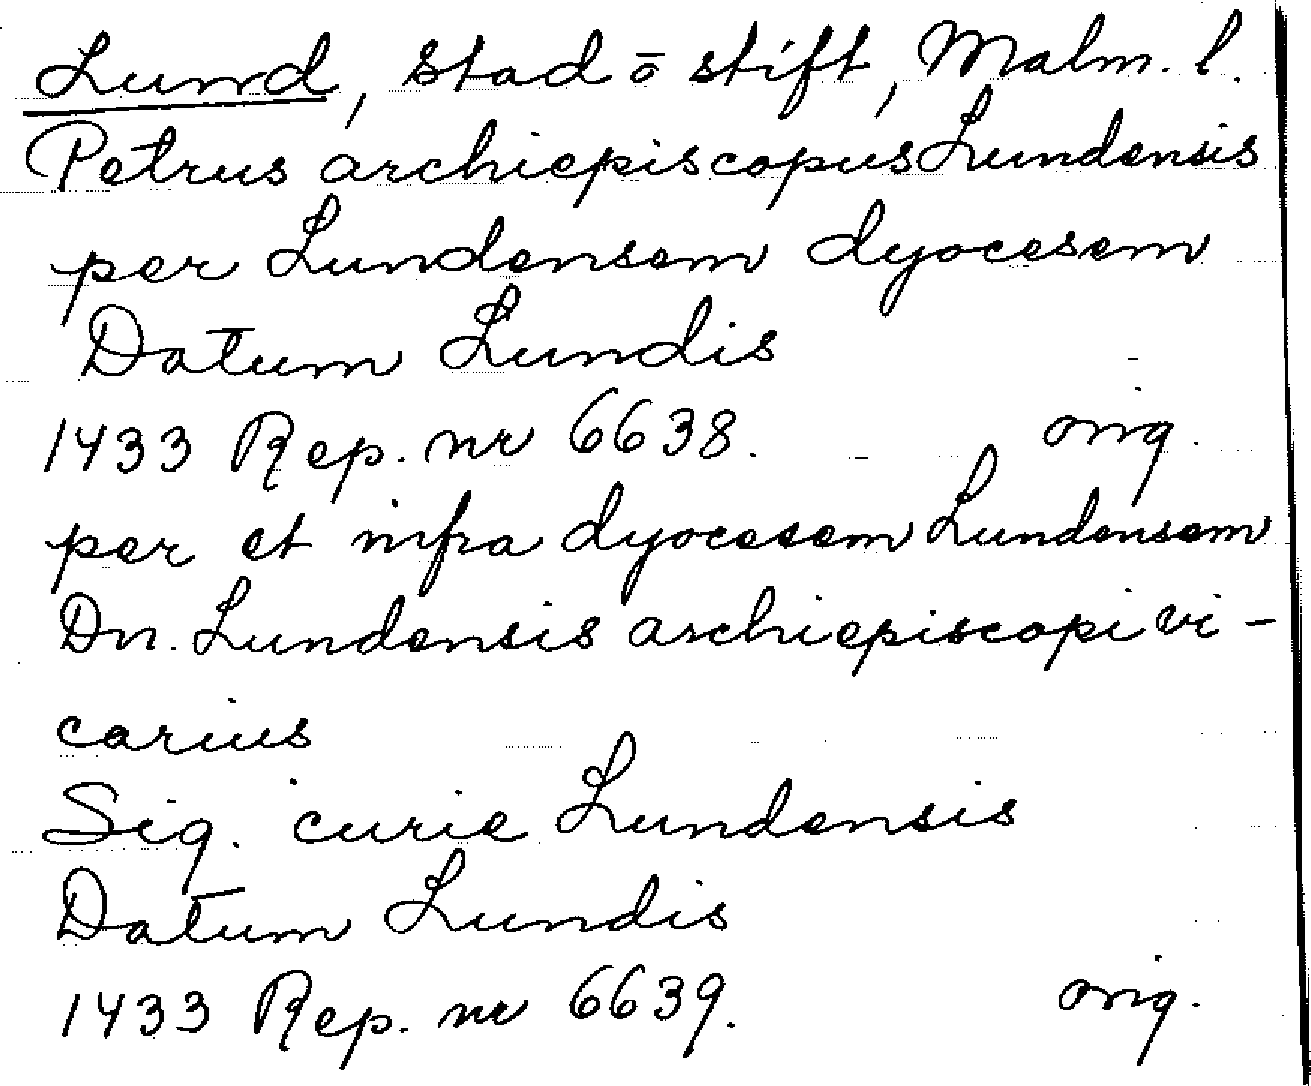 Lund, stad ō stift, Malm. l.
Petrus archiepiscopus Lundensis
per Lundensem dyocesem
Datum Lundis
1433 Rep. nr 6638. orig.
per et infra dyocesem Lundensem
Dn. Lundensis archiepiscopi vi-
carius
Sig. curie Lundensis
Datum Lundis
1433 Rep. nr 6639. orig.